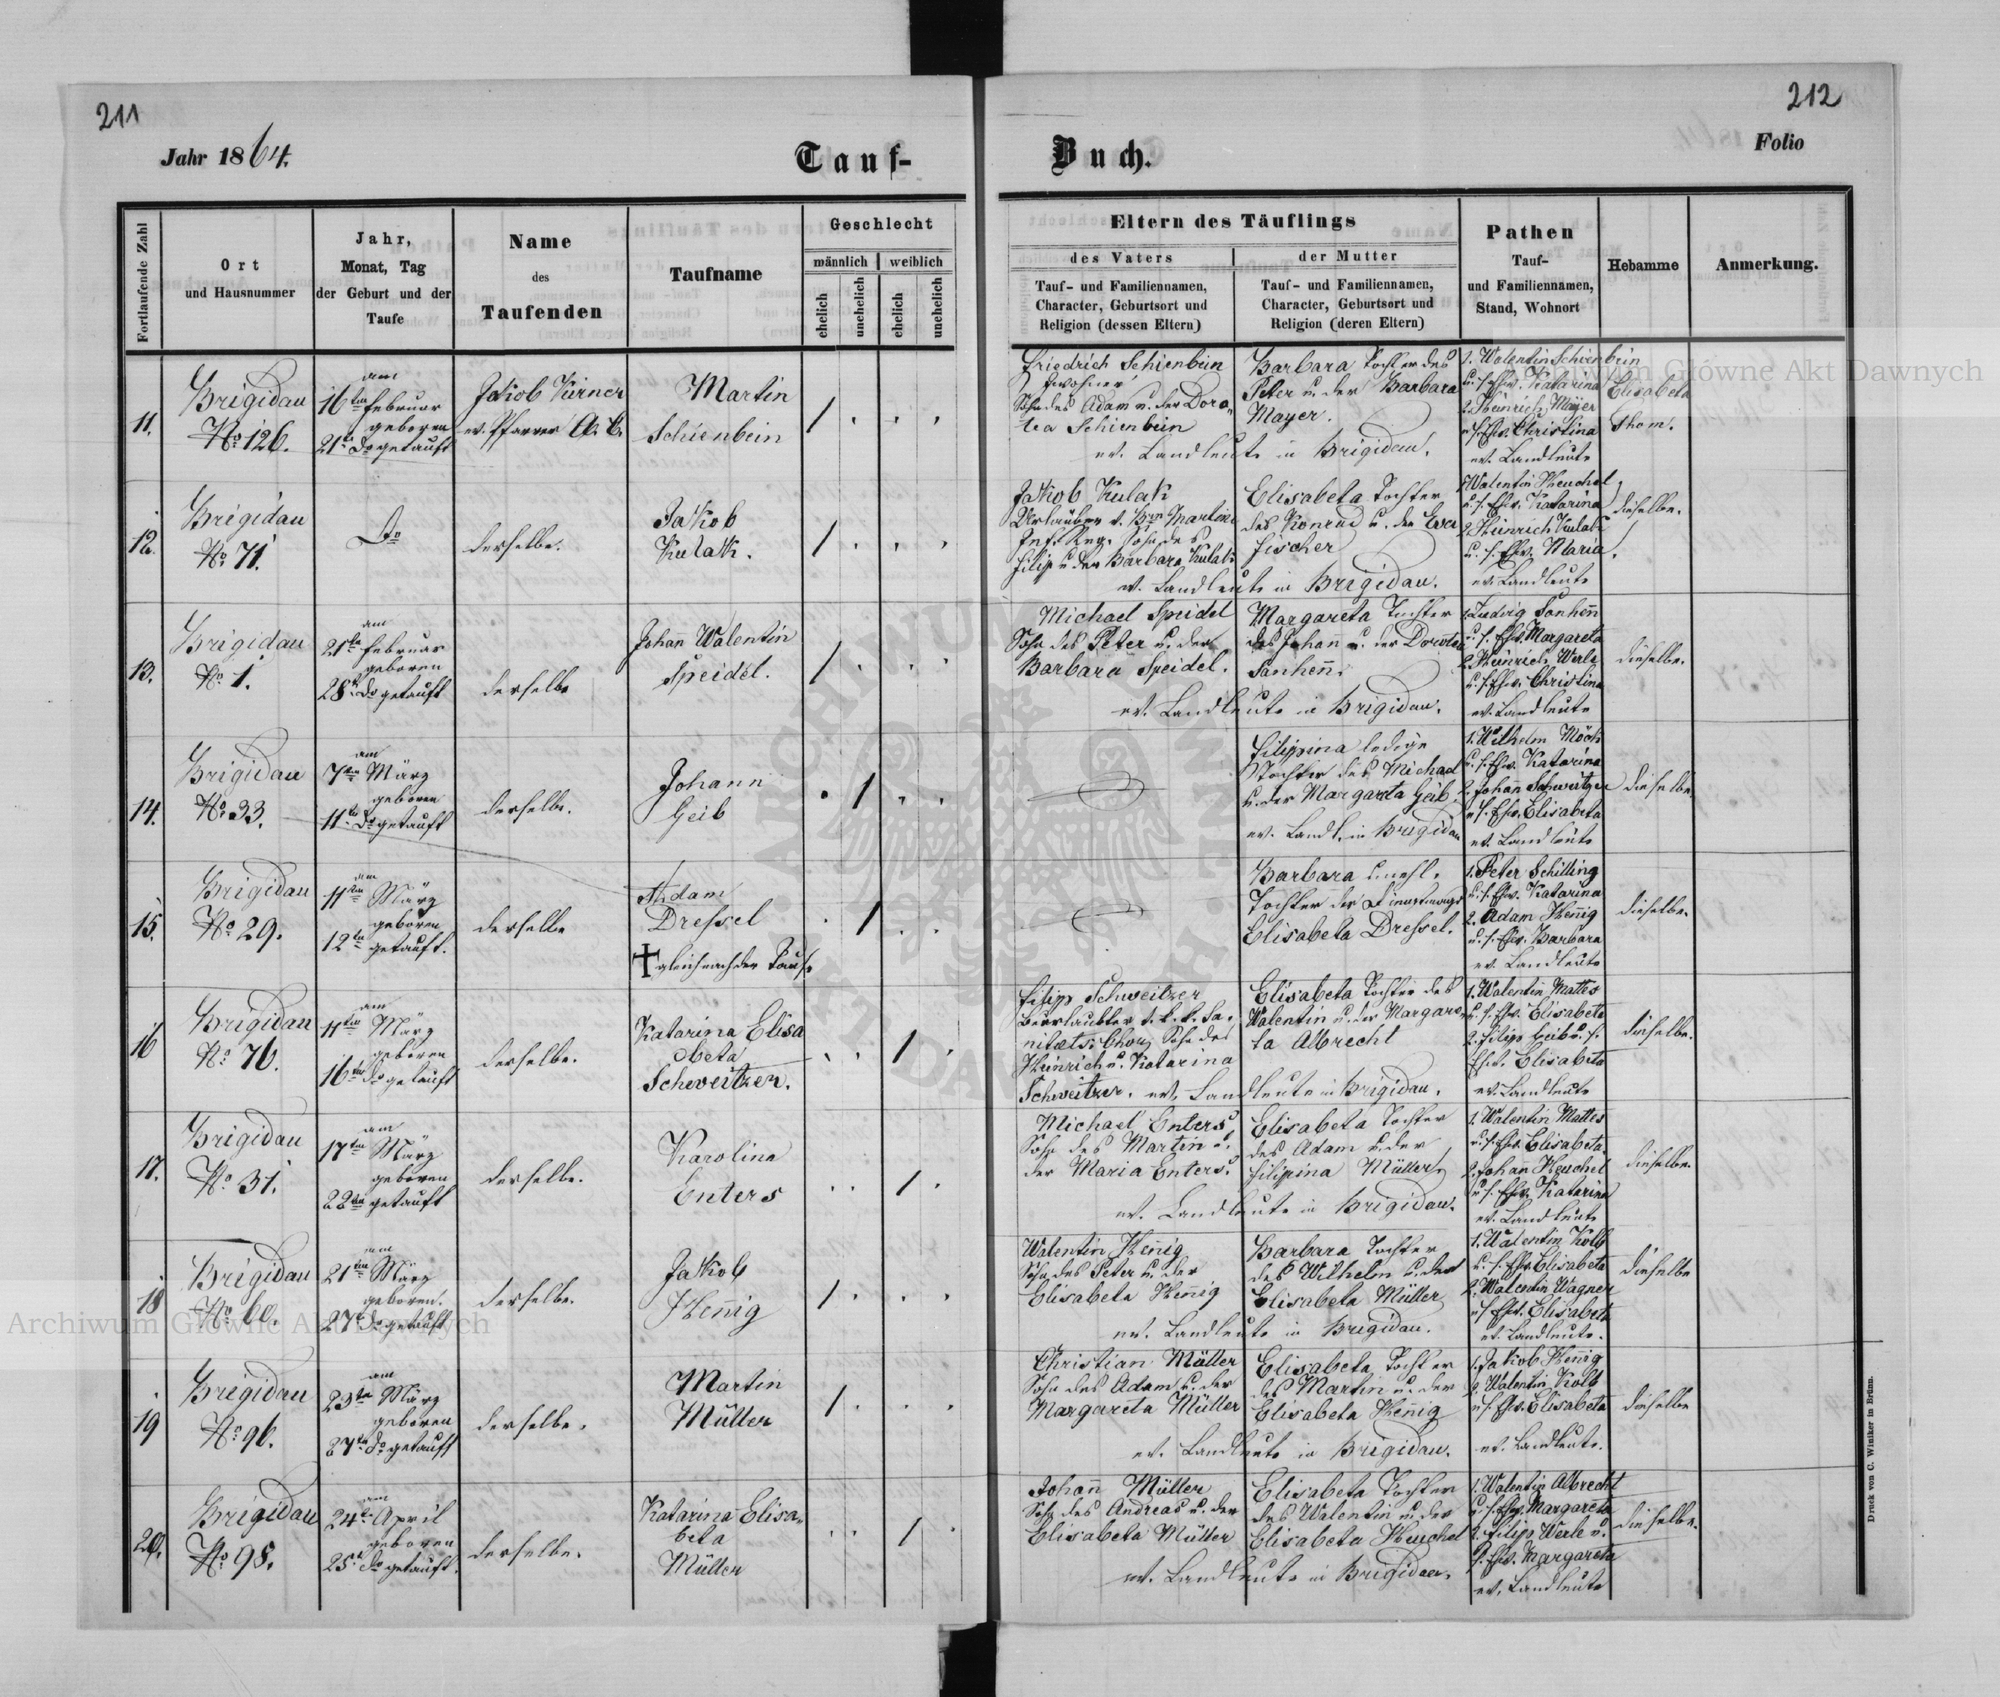 211
212
Jahr 1864.
Tauf-
Buch.
Folio
Fortlaufende Zahl
Ort
und Hausnummer
Jahr,
Monat, Tag
der Geburt und der
Taufe
Name
des
Taufenden
Taufname
Geschlecht
männlich
weiblich
ehelich
unehelich
ehelich
unehelich
Eltern des Täuflings
des Vaters
Tauf- und Familiennamen,
Character, Geburtsort und
Religion (dessen Eltern)
der Mutter
Tauf- und Familiennamen,
Character, Geburtsort und
Religion (deren Eltern)
Pathen
Tauf-
und Familiennamen,
Stand, Wohnort
Hebamme
Anmerkung.
11.
Brigidau
No 126.
am
16ten Februar
geboren
21ten do getauft
Jakob Kürner
ev. Pfarrer A. C.
Martin
Schienbein
Friedrich Schienbein
Sohn des Adam u. der Doro-
tea Schienbein
Barbara Tochter des
Peter u. der Barbara
Mayer.
ev. Landleute in Brigidau.
1. Walentin Schienbein
u. s. Ehw. Katarina
2. Heinrich Mayer
u. s. Ehw. Christina
ev. Landleute
Elisabeta
Thom.
12.
Brigidau
No 71.
do
derselbe.
Jakob
Kulak.
Jakob Kulak
Inf. Reg. Sohn des
Filip u. der Barbara Kulak
Elisabeta Tochter
des Konrad u. der Eva
Fischer
ev. Landleute in Brigidau.
1. Walentin Heuchel
u. s. Ehw. Katarina
2. Heinrich Kulak
u. s. Ehw. Maria
ev. Landleute
dieselbe.
13.
Brigidau
No 1.
am
21ten Februar
geboren
28ten do getauft
derselbe
Johan Walentin
Speidel.
Michael Speidel
Sohn des Peter u. der
Barbara Speidel.
Margareta Tochter
des Johann u. der Dorotea
Sanheñ.
ev. Landleute in Brigidau.
1. Ludwig Sanheñ
u. s. Ehw. Margareta
2. Heinrich Werle
u. s. Ehw. Christina
ev. Landleute
dieselbe.
14.
Brigidau
No 33.
am
7ten März
geboren
11ten do getauft
derselbe.
Johann
Geib
Filippina ledige
Tochter des Michael
u. der Margareta Geib
ev. Landl. in Brigidau
1. Wilhelm Möch
u. s. Ehw. Katarina
2. Johañ Schweitzer
u. s. Ehw. Elisabeta
ev. Landleute
dieselbe.
15.
Brigidau
No 29.
am
11ten März
geboren
12ten getauft.
derselbe
Adam
Dreßel
† gleich nach der Taufe
Barbara unehl.
Tochter der
Elisabeta Dreßel.
1. Peter Schilling
u. s. Ehw. Katarina
2. Adam Heñig
u. s. Ehw. Barbara
ev. Landleute
dieselbe.
16
Brigidau
No 76.
am
11ten März
geboren
16ten do getauft
derselbe.
Katarina Elisa
beta
Schweitzer.
Filipp Schweitzer
Beurlaubter d. k. k. Sa-
nitäts-Chor, Sohn des
Heinrich u. Katarina
Schweitzer.
Elisabeta Tochter des
Walentin u. der Margare-
ta Albrecht
ev. Landleute in Brigidau.
1. Walentin Mattes
u. s. Ehw. Elisabeta
2. Filipp Geib u. s.
Ehw. Elisabeta
ev. Landleute
dieselbe.
17.
Brigidau
No 31.
am
17ten März
geboren
22ten getauft
derselbe.
Karolina
Enters
Michael Enters,
Sohn des Martin u.
der Maria Enters.
Elisabeta Tochter
des Adam u. der
Filippina Müller
ev. Landleute in Brigidau.
1. Walentin Mattes
u. s. Ehw. Elisabeta.
2. Johañ Heuchel
u. s. Ehw. Katarina
ev. Landleute
dieselbe.
18
Brigidau
No 60.
am
21ten März
geboren.
27ten do getauft
derselbe.
Jakob
Heñig
Walentin Heñig
Sohn des Peter u. der
Elisabeta Heñig
Barbara Tochter
des Wilhelm u. der
Elisabeta Müller
ev. Landleute in Brigidau.
1. Walentin Kolb
u. s. Ehw. Elisabeta
2. Walentin Wagner
u. s. Ehw. Elisabeta
ev. Landleute.
dieselbe
19
Brigidau
No 96.
am
23ten März
geboren
27ten do getauft
derselbe.
Martin
Müller
Christian Müller
Sohn des Adam u. der
Margareta Müller
Elisabeta Tochter
des Martin u. der
Elisabeta Heñig
ev. Landleute in Brigidau.
1. Jakob Heñig
2. Walentin Kolb
u. s. Ehw. Elisabeta
ev. Landleute.
dieselbe
20.
Brigidau
No 98.
am
24ten April
geboren
25ten do getauft.
derselbe.
Katarina Elisa-
beta
Müller
Johañ Müller
Sohn des Andreas u. der
Elisabeta Müller
Elisabeta Tochter
des Walentin u. der
Elisabeta Heuchel
ev. Landleute in Brigidau.
1. Walentin Albrecht
u. s. Ehw. Margareta
2. Filipp Werle u.
s. Ehw. Margareta
ev. Landleute
dieselbe.
Druck von C. Winiker in Brünn.
Archiwum Główne Akt Dawnych
Archiwum Główne Akt Dawnych